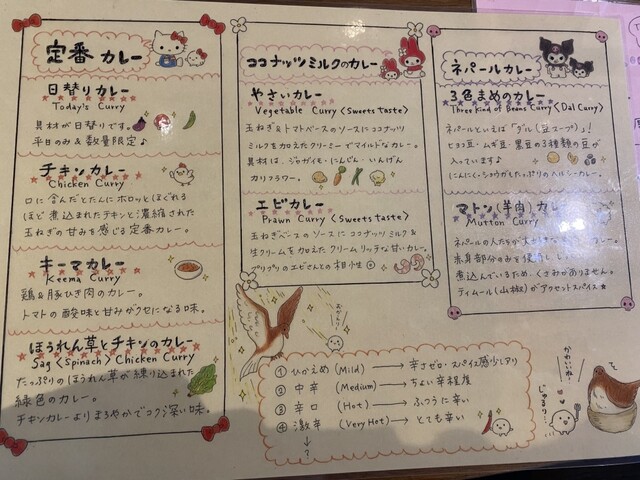 定番 カレー
日替りカレー
Today's Curry
具材が日替りです。
平日のみ&数量限定♪
チキンカレー
Chicken Curry
口に含んだとたんにホロッとほぐれる
ほど煮込まれたチキンと濃縮された
玉ねぎの甘みを感じる定番カレー。
キーマカレー
Keema Curry
鶏&豚ひき肉のカレー。
トマトの酸味と甘みがクセになる味。
ほうれん草とチキンのカレー
Sag <Spinach> Chicken Curry
たっぷりのほうれん草が練り込まれた
緑色のカレー。
チキンカレーよりまろやかでコク深い味。
ココナッツミルクのカレー
やさいカレー
Vegetable Curry <Sweets taste>
玉ねぎ&トマトベースのソースにココナッツ
ミルクを加えたクリーミーでマイルドなカレー。
具材は、ジャガイモ・にんじん・いんげん
カリフラワー。
エビカレー
Prawn Curry <Sweets taste>
玉ねぎベースのソースにココナッツミルク&
生クリームを加えたクリームリッチな甘いカレー。
プリプリのエビさんとの相性◎
ネパールカレー
3色まめのカレー
Three kind of Beans Curry <Dal Curry>
ネパールといえば「ダル(豆スープ)」!
ヒヨコ豆・ムギ豆・黒豆の3種類の豆が
入っています♪
にんにく・ショウガたっぷりのヘルシーカレー。
マトン(羊肉)カレー
Mutton Curry
ネパールの人たちが
カレー。
赤身部分のみを使用し
煮込んでいるため、くさみがありません。
ティムール(山椒)がアクセットスパイス☆
① ひかえめ (Mild) → 辛さゼロ・スパイス感少しアリ
② 中辛 (Medium) → ちょい辛程度
③ 辛口 (Hot) → ふつうに辛い
④ 激辛 (Very Hot) → とても辛い
↓
?
かわいいね〜